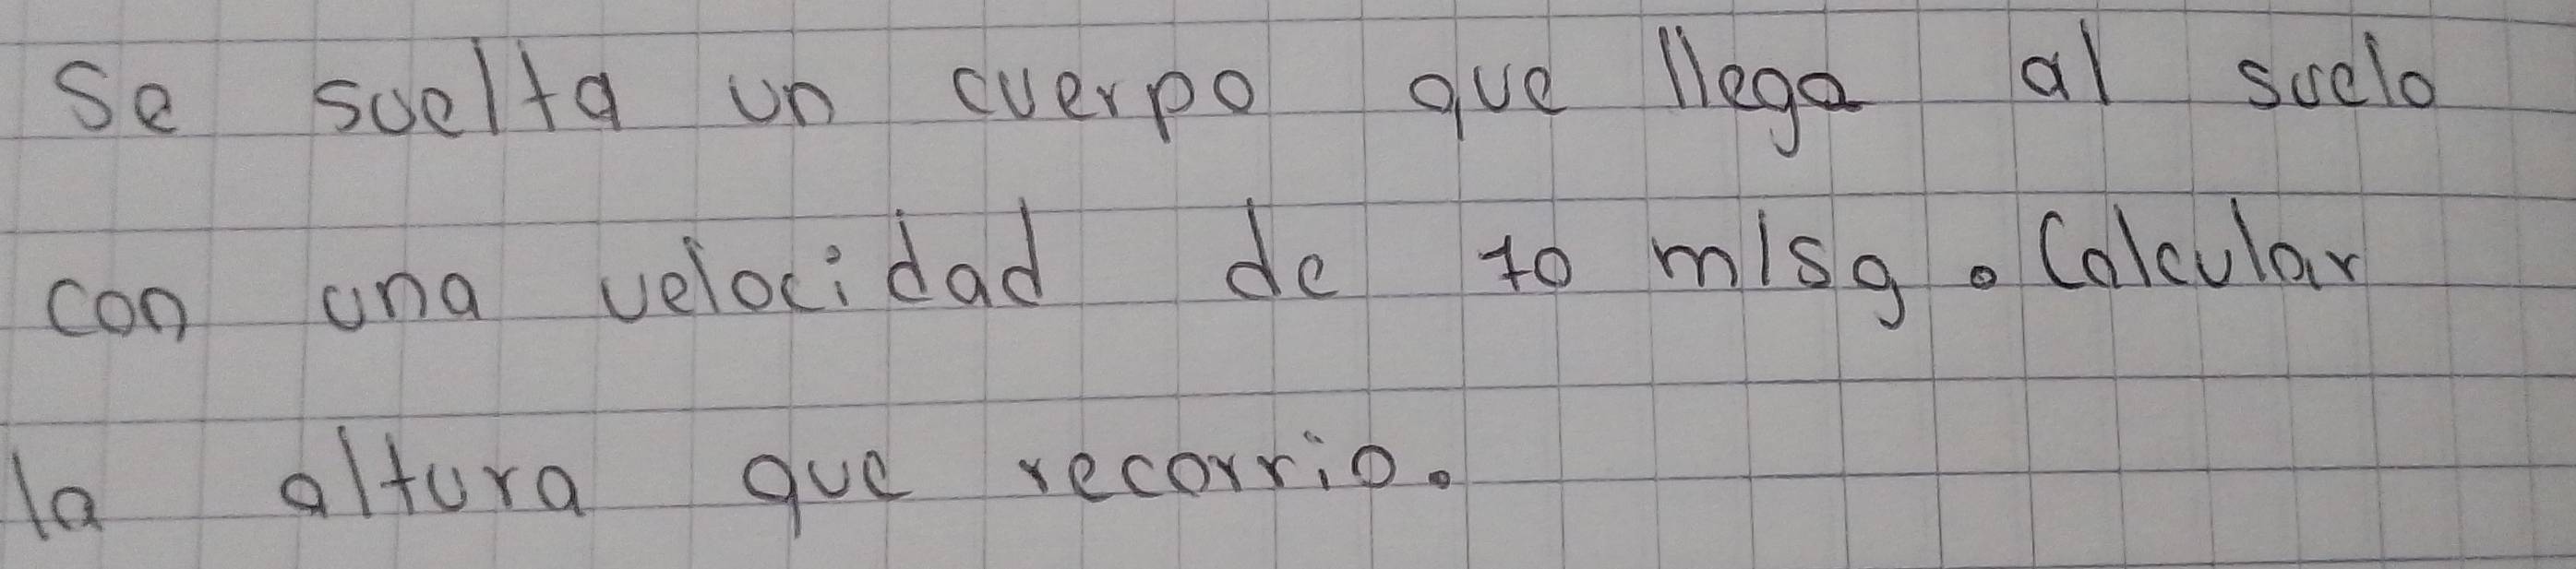 Se suelta un cuerpo que llega al suelo
con una velocidad de 10 m/sg. Calcular
la altura que recorrio.